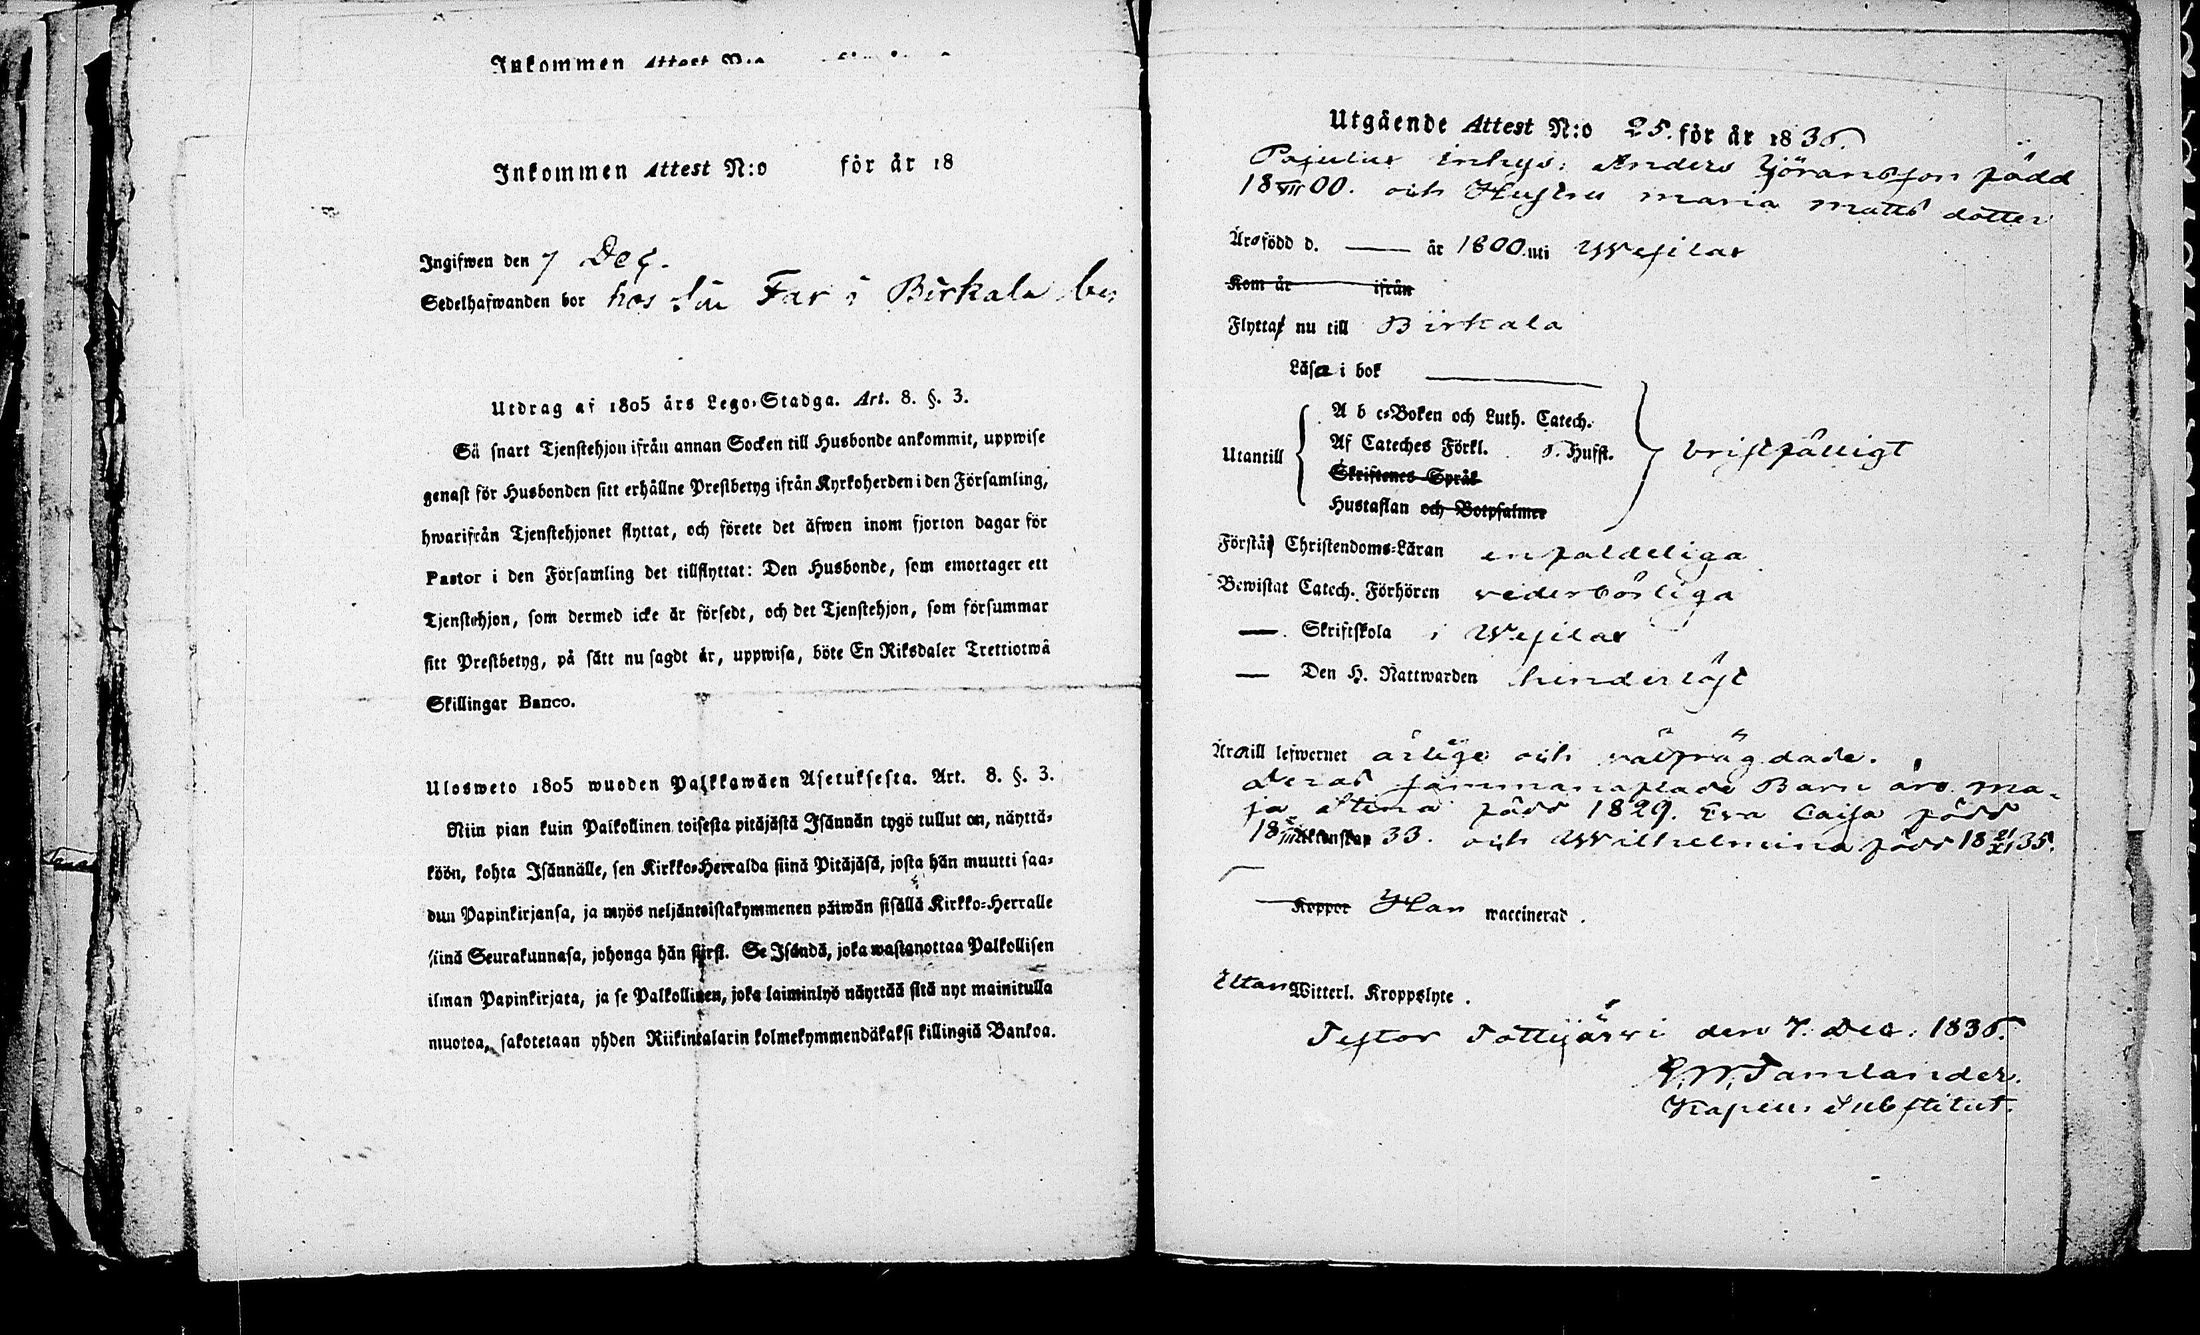 Inkommen Attest N:o
Inkommen Attest N:o för år 18
Ingifwen den 7 Dec.
Sedelhafwanden bor hos sin Far i Birkala
Utdrag af 1805 års Lego-Stadga. Art. 8. §. 3.
Så snart Tjenstehjon ifrån annan Socken till Husbonde ankommit, uppwise
genast för Husbonden sitt erhållne Prestbetyg ifrån Kyrkoherden i den Församling,
hwarifrån Tjenstehjonet flyttat, och förete det äfwen inom fjorton dagar för
Pastor i den Församling det tillflyttat: Den Husbonde, som emottager ett
Tjenstehjon, som dermed icke är försedt, och det Tjenstehjon, som försummar
sitt Prestbetyg, på sätt nu sagdt är, uppwisa, böte En Riksdaler Trettiotwå
Skillingar Banco.
Ulosweto 1805 wuoden Palkkawäen Asetuksesta. Art. 8. §. 3.
Niin pian kuin Palkollinen toisesta pitäjästä Isännän tygö tullut on, näyttä-
köön, kohta Isännälle, sen Kirkko-Herralda siinä Pitäjäsä, josta hän muutti saa-
dun Papinkirjansa, ja myös neljäntoistakymmenen päiwän sisällä Kirkko-Herralle
siinä Seurakunnasa, johonga hän siirsi. Se Isändä, joka wastanottaa Palkollisen
ilman Papinkirjata, ja se Palkollinen, joka laiminlyö näyttää sitä nyt mainitulla
muotoa, sakotetaan yhden Riikintalarin kolmekymmendäkaksi killingiä Bankoa.
Utgående Attest N:o 25. för år 1836.
Pajulus inhys: Anders Göransson född
18 VII 00. och Hustru Maria Matts dotter
Äro född d. — år 1800. uti Wesilax
Kom år ifrån
Flytta nu till Birkala
Läsa i bok
A b c-Boken och Luth. Catech.
Af Cateches Förkl. 5. Hufst.
Utantill bristfälligt
Skriftenes Språk
Hustaflan och Botpsalmer
Förstå Christendoms-Läran enfaldeliga
Bewistat Catech. Förhören vederbörliga
— Skriftskola i Wesilax
— Den H. Nattwarden hinderlöst
Äro till lefwernet ärlige och välfrägdade.
Deras sammanaflade Barn äro Ma-
ja Stina född 1829. Eva Caisa född
18 33. och Wilhelmina född 18 35.
Koppor Han waccinerad.
Utan Witterl. Kroppslyte.
Testor Tottijärwi den 7. Dec. 1836.
Tamlander.
Kapell. Substitut.